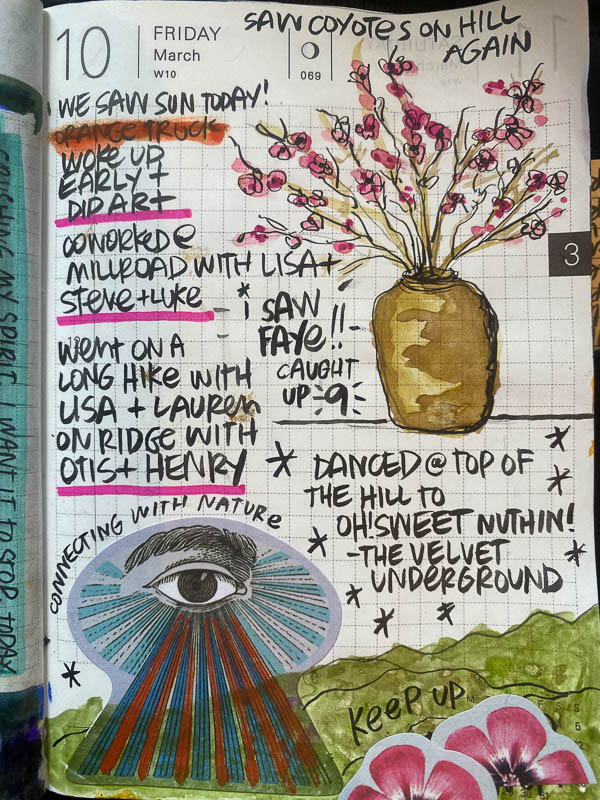 SAW COYOTES ON HILL
AGAIN
10
FRIDAY
March
W10
069
WE SAW SUN TODAY!
ORANGE TRUCK
WOKE UP
EARLY +
DID ART
COWORKED @
MILLROAD WITH LISA +
STEVE + LUKE
I SAW
FAYE!!
CAUGHT
UP
3
WENT ON A
LONG HIKE WITH
LISA + LAUREN
ON RIDGE WITH
OTIS + HENRY
DANCED @ TOP OF
THE HILL TO
OH! SWEET NUTHIN!
-THE VELVET
UNDERGROUND
CONNECTING WITH NATURE
KEEP UP
MY SPIRIT I WANT IT TO STOP TODAY